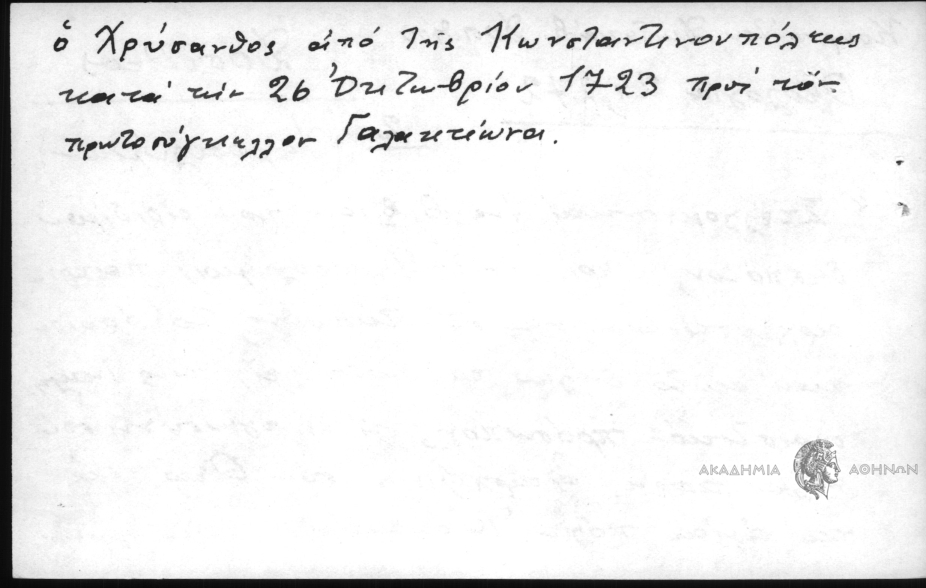 ὁ Χρύσανθος ἀπό τῆς Κωνσταντινουπόλεως
κατά τήν 26 Ὀκτωβρίου 1723 πρός τόν
πρωτοσύγκελλον Γαλακτίωνα.
ΑΚΑΔΗΜΙΑ ΑΘΗΝΩΝ